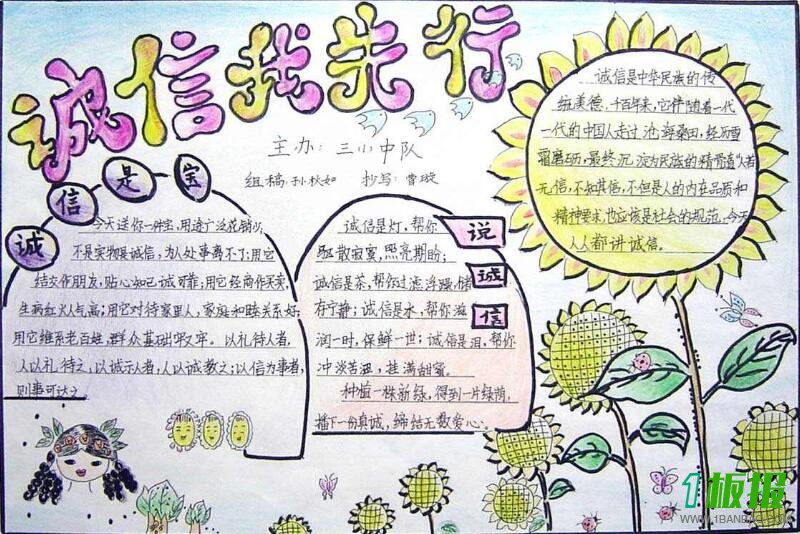 诚信我先行
主办：三小中队
组稿：孙秋如 抄写：曹璇
诚信是宝
今天送你一件宝，用途广泛花销少；
不是实物是诚信，为人处事离不了；用它
结交作朋友，贴心知己诚可靠；用它经商作买卖，
生病红火人气高；用它对待家里人，家庭和睦关系好；
用它维系老百姓，群众基础牢又牢。以礼待人者，
人以礼待之；以诚示人者，人以诚教之；以信为事者，
则事可达之。
说诚信
诚信是灯，帮你
驱散寂寞，照亮期盼；
诚信是茶，帮你过滤浮躁，储
存宁静；诚信是水，帮你滋
润一时，保鲜一世；诚信是泪，帮你
冲淡苦涩，挂满甜蜜。
种植一株新绿，得到一片绿荫，
播下一份真诚，缔结无数爱心。
诚信是中华民族的传
统美德，千百年来，它伴随着一代
一代的中国人走过沧海桑田，经历雪
霜磨砺，最终沉淀为民族的精骨道"人若
无信，不知其信，不但是人的内在品质和
精神要求，也应该是社会的规范，今天
人人都讲诚信。
1板报
WWW.1BANBAO.COM